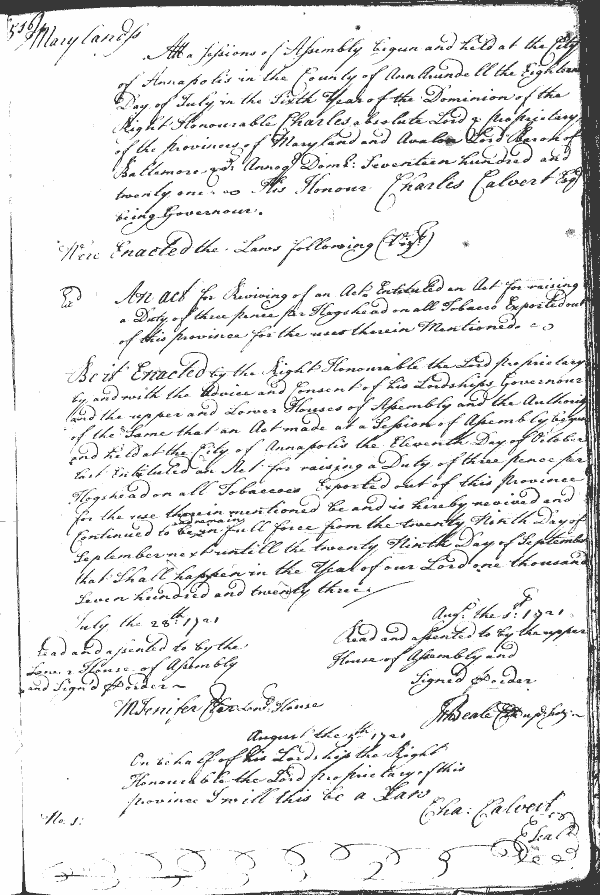 556
Maryland ss
Att a sessions of Assembly begun and held at the City
of Annapolis in the County of Ann Arundell the Eighteenth
Day of July in the Sixth Year of the Dominion of the
Right Honourable Charles absolute Lord & proprietary
of the provinces of Maryland and Avalon Lord Baron of
Baltemore &c: Annoq Dom: Seventeen hundred and
twenty one. His Honour Charles Calvert Esq
being Governour.
Were Enacted the Laws following (Vizt)
An act for Reviving of an Act Entituled an Act for raising
a Duty of three pence per Hogshead on all Tobacco Exported out
of this province for the uses therein Mentioned
Be it Enacted by the Right Honourable the Lord proprietary
by and with the Advice and Consent of his Lordships Governour
and the upper and Lower Houses of Assembly and the Authority
of the Same that an Act made at a Session of Assembly begun
and held at the City of Annapolis the Eleventh Day of October
last Entituled an Act for raising a Duty of three pence per
Hogshead on all Tobaccoes Exported out of this Province
for the use therein mentioned be and is hereby revived and
Continued to be and remain in full force from the twenty Ninth Day of
September next untill the twenty Ninth Day of September
that Shall happen in the Year of our Lord one thousand
Seven hundred and twenty three
July the 28th 1721
Read and assented to by the
Lower House of Assembly
and Signed p order
M Jenifer Clk Low: House
Augt: the 1st: 1721
Read and assented to by the upper
House of Assembly and
Signed p order
Jn Beale
August the 5th 1721
On behalf of his Lordship the Right
Honourable the Lord proprietary of this
province I will this be a Law
Cha: Calvert
Seal
No. 1: